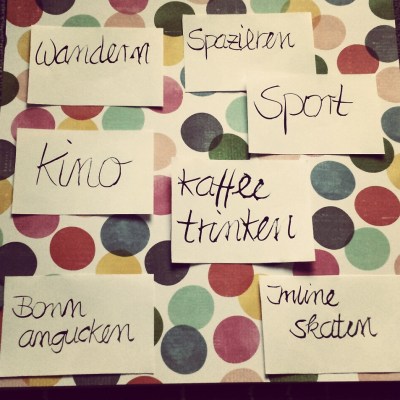 Wandern
Spazieren
Sport
Kino
Kaffee
trinken
Bonn
angucken
Inline
skaten